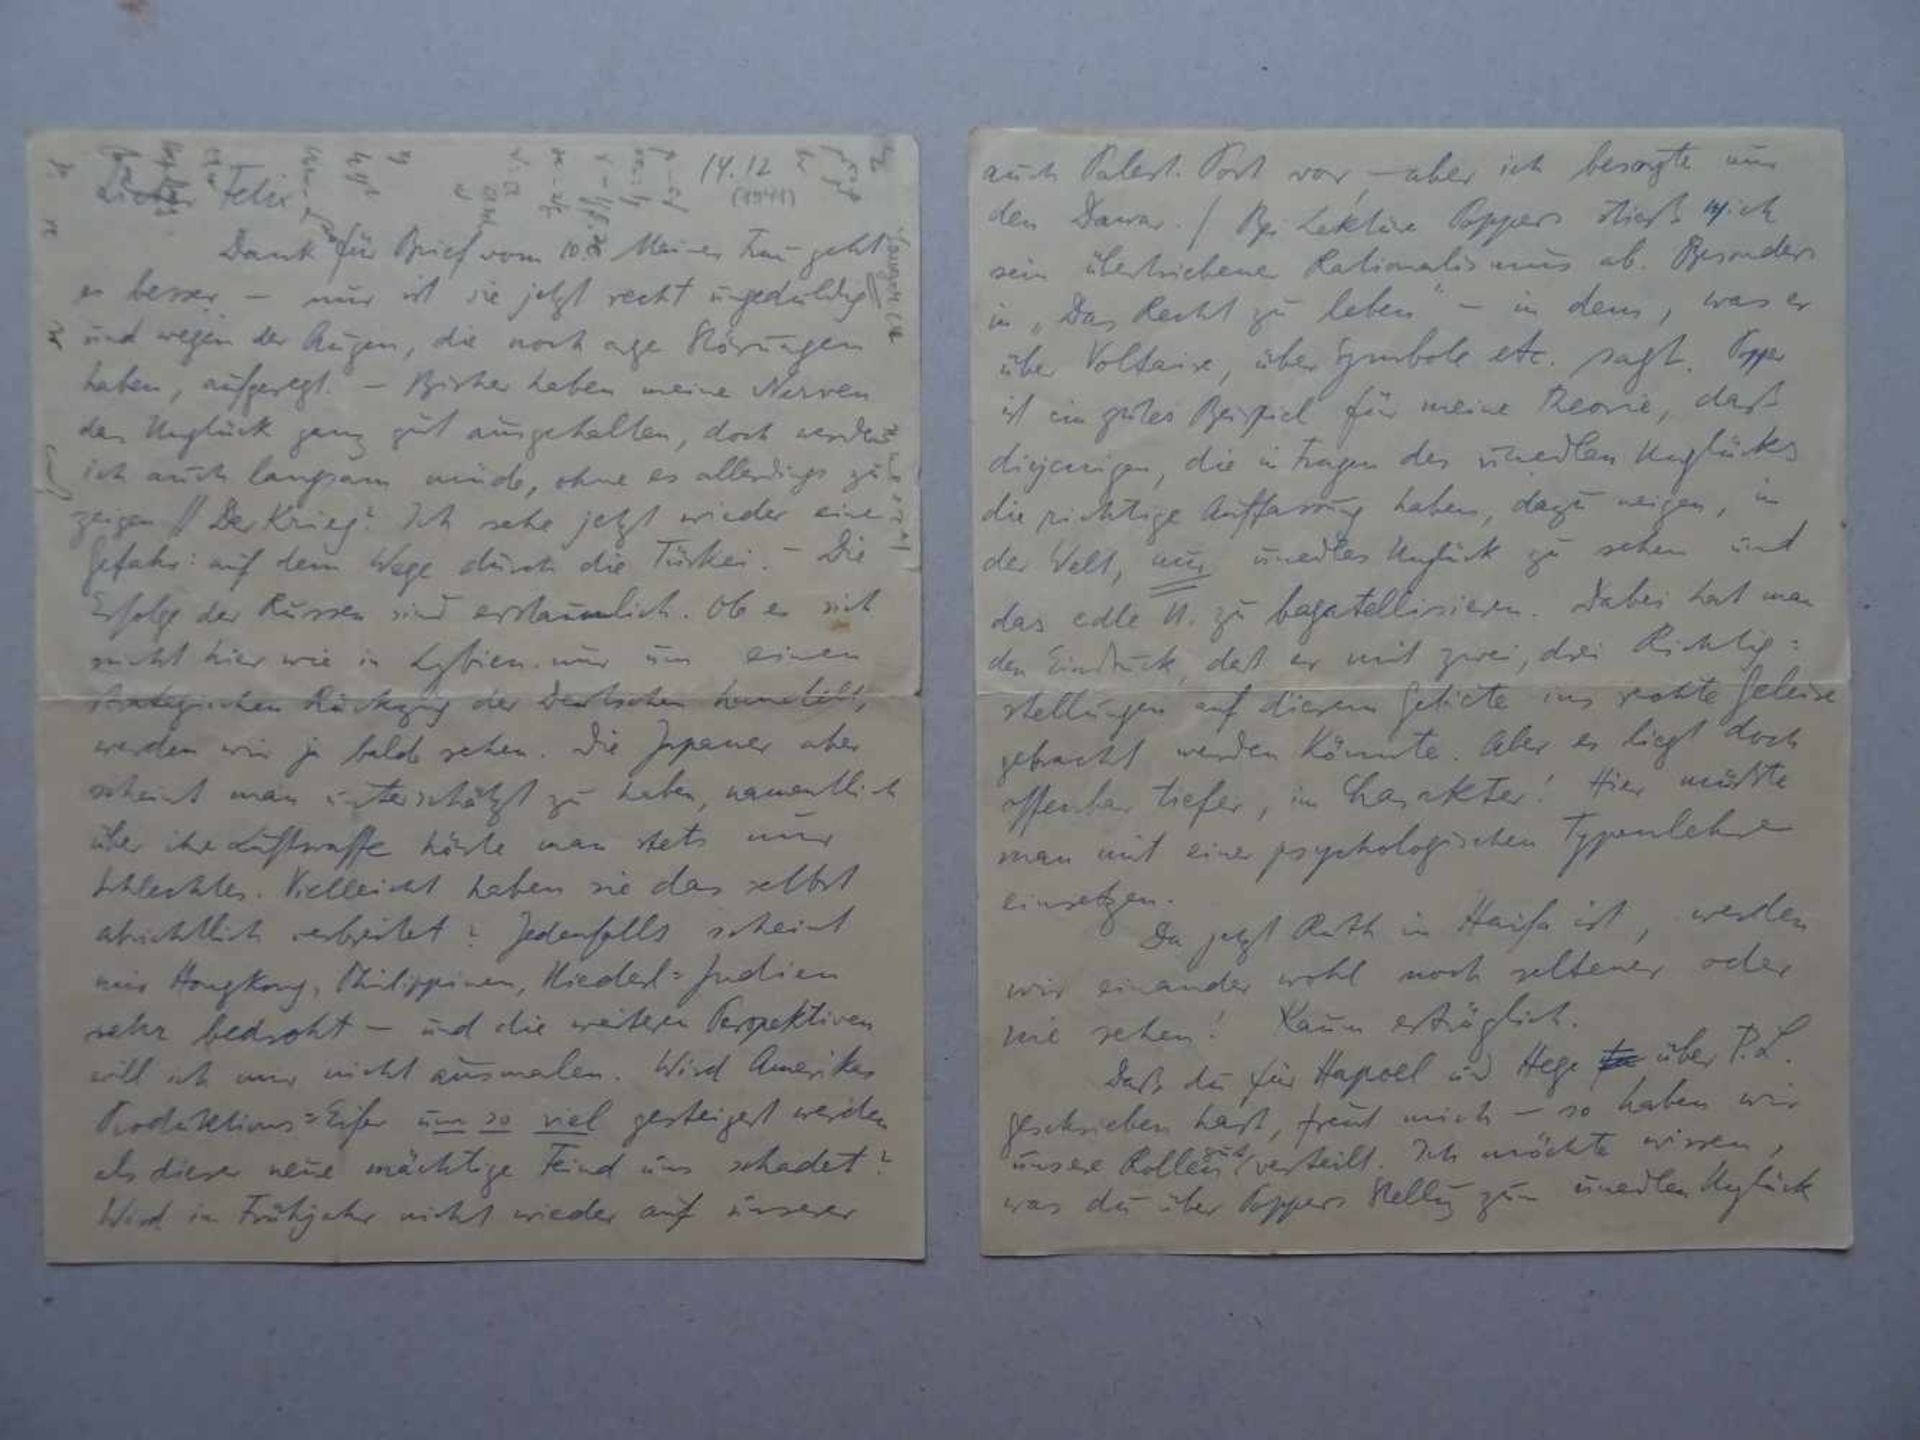 14.12
(1941)
Lieber Felix
Dank für Brief vom 10. Meiner Frau geht
es besser – nur ist sie jetzt recht ungeduldig
und wegen der Augen, die noch arge Störungen
haben, aufgeregt. – Bisher haben meine Nerven
das Unglück ganz gut ausgehalten, doch werde
ich auch langsam müde, ohne es allerdings zu
zeigen // Der Krieg? Ich sehe jetzt wieder eine
Gefahr: auf dem Wege durch die Türkei. – Die
Erfolge der Russen sind erstaunlich. Ob es sich
nicht hier wie in Lybien nur um einen
strategischen Rückzug der Deutschen handelt,
werden wir ja bald sehen. Die Japaner aber
scheint man unterschätzt zu haben, namentlich
über ihre Luftwaffe hörte man stets nur
schlechtes. Vielleicht haben sie das selbst
absichtlich verbreitet? Jedenfalls scheint
mir Hongkong, Philippinen, Niederl=Indien
sehr bedroht – und die weiteren Perspektiven
will ich mir nicht ausmalen. Wird Amerikas
Produktions=Eifer um so viel gesteigert werden
als dieser neue mächtige Feind uns schadet?
Wird im Frühjahr nicht wieder auf unserer
auch Palest. Post vor, – aber ich besorgte nur
den Dawar. / Bei Lektüre Poppers stieß mich
sein übertriebener Rationalismus ab. Besonders
in „Das Recht zu leben" – in dem, was er
über Voltaire, über Symbole etc. sagt. Popper
ist ein gutes Beispiel für meine Theorie, daß
diejenigen, die in Fragen des unedlen Unglücks
die richtige Auffassung haben, dazu neigen, in
der Welt, nur unedles Unglück zu sehen und
das edle U. zu bagatellisieren. Dabei hat man
den Eindruck, daß er mit zwei, drei Richtig=
stellungen auf diesem Gebiete ins rechte Geleise
gebracht werden könnte. Aber es liegt doch
offenbar tiefer, im Charakter! Hier müßte
man mit einer psychologischen Typenlehre
einsetzen.
Da jetzt Ruth in Haifa ist, werden
wir einander wohl noch seltener oder
nie sehen! Kaum erträglich.
Daß du für Hapoel und Hege über P.L.
geschrieben hast, freut mich – so haben wir
unsere Rollen gut verteilt. Ich möchte wissen,
was du über Poppers Stellg zum unedlen Unglück